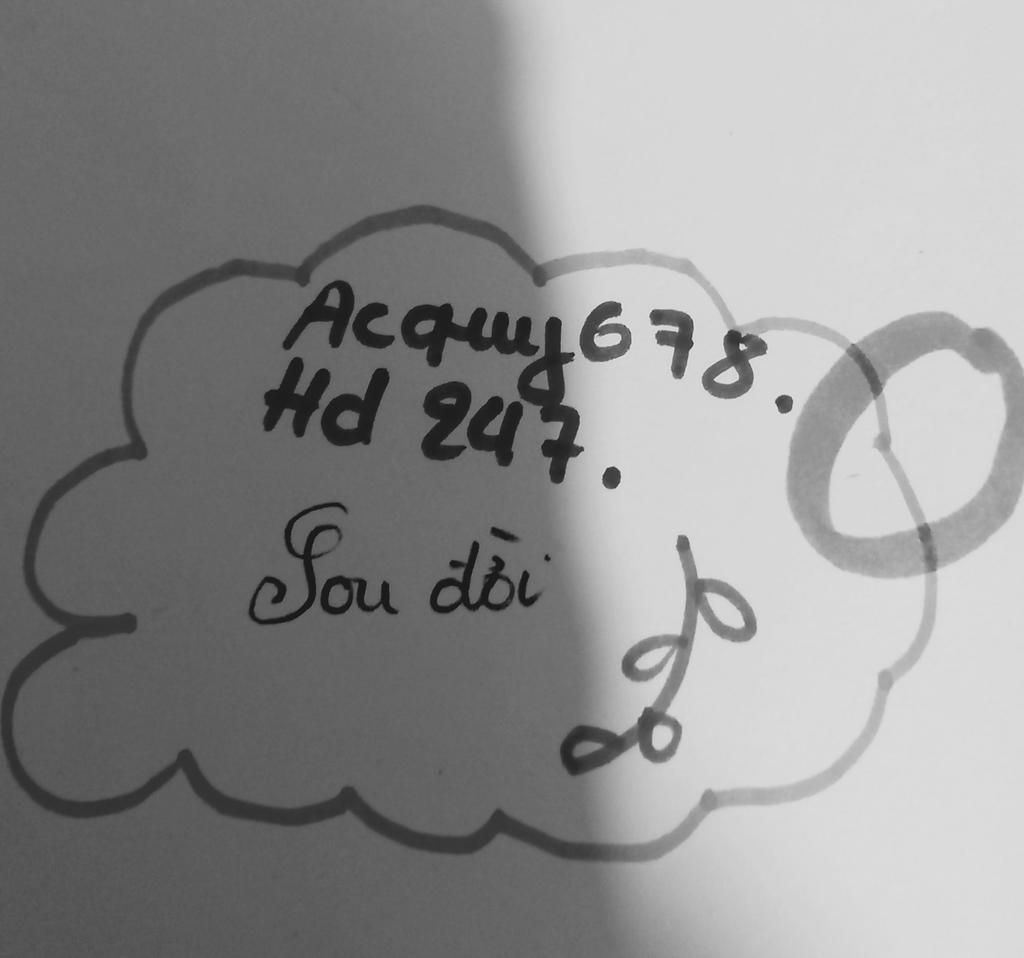 Acquy678.
Hd 247.
Sou đồi